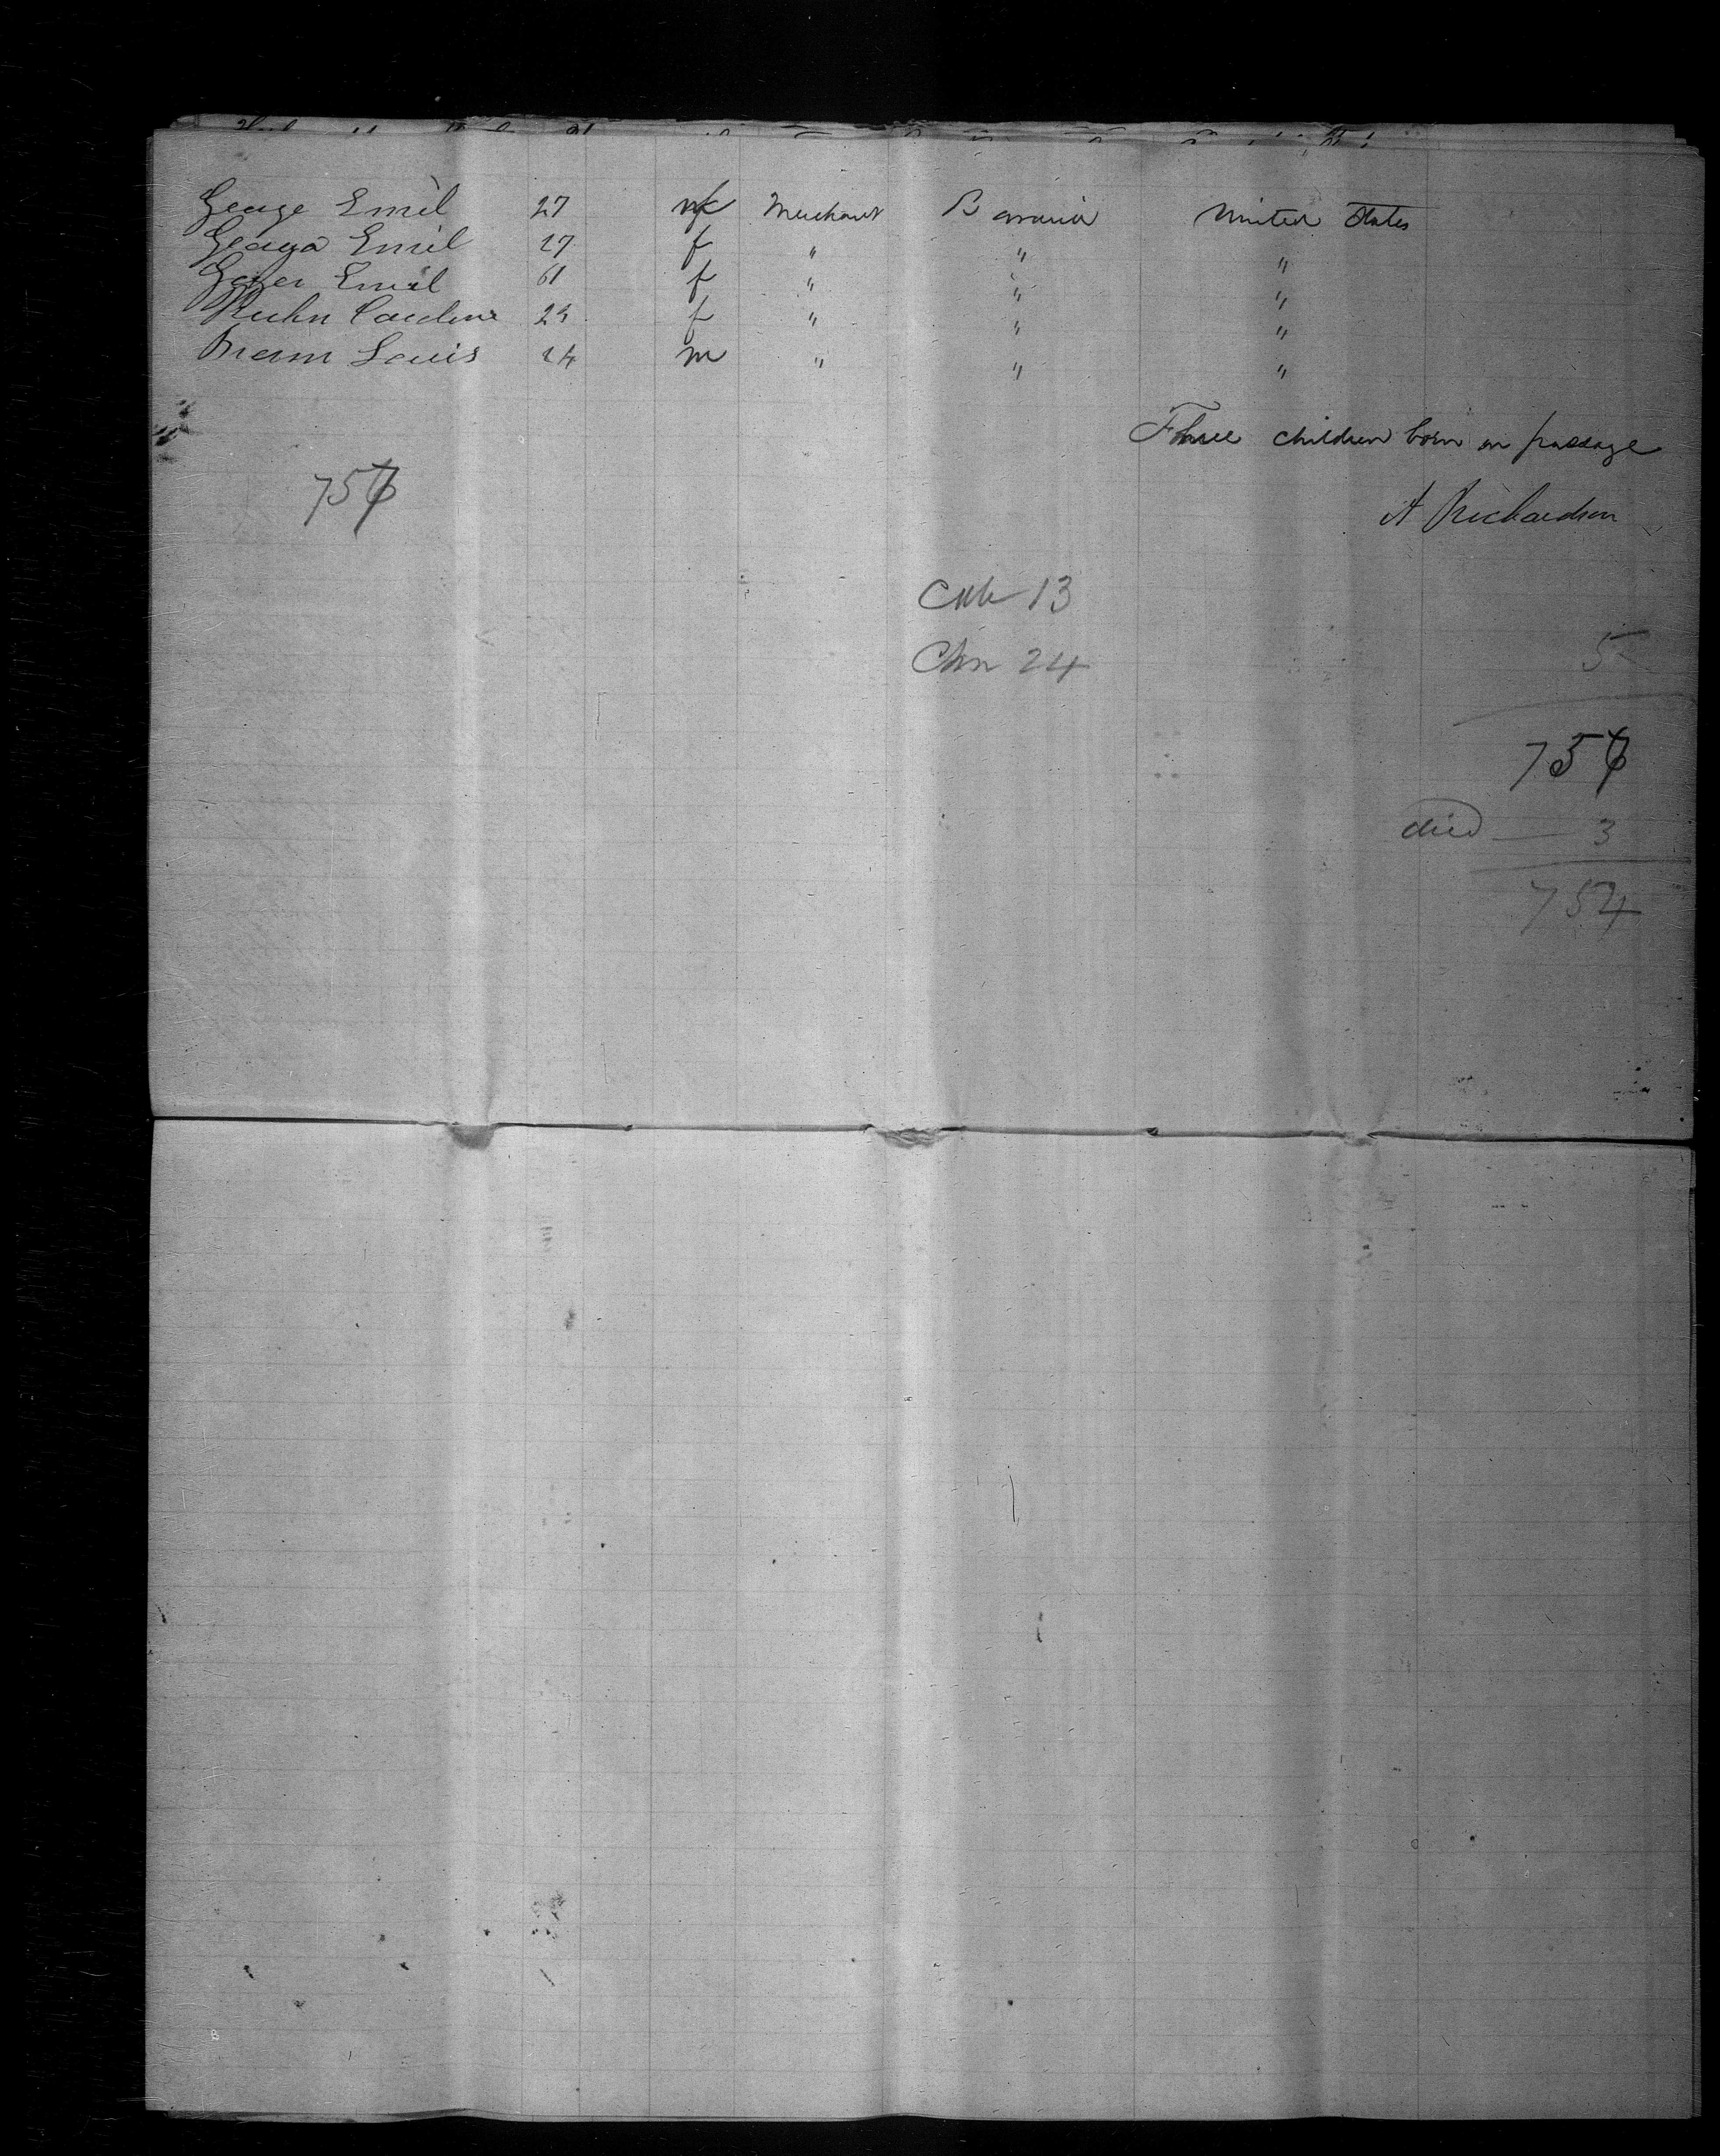 George Emil 27 m Merchant Bavaria United States
Georga Emil 27 f " " "
Geyer Emil 61 f " " "
Kuhn Caroline 23 f " " "
Mann Louis 24 m " " "
Three children born on passage
757
A Richardson
13
Chn 24
5
757
died — 3
754